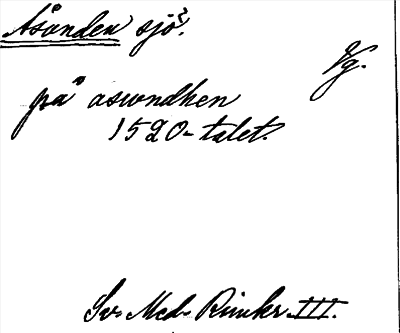 Åsunden sjö?
Vg.
på aswndhen
1520-talet.
Sv. Med. Rimkr. III.